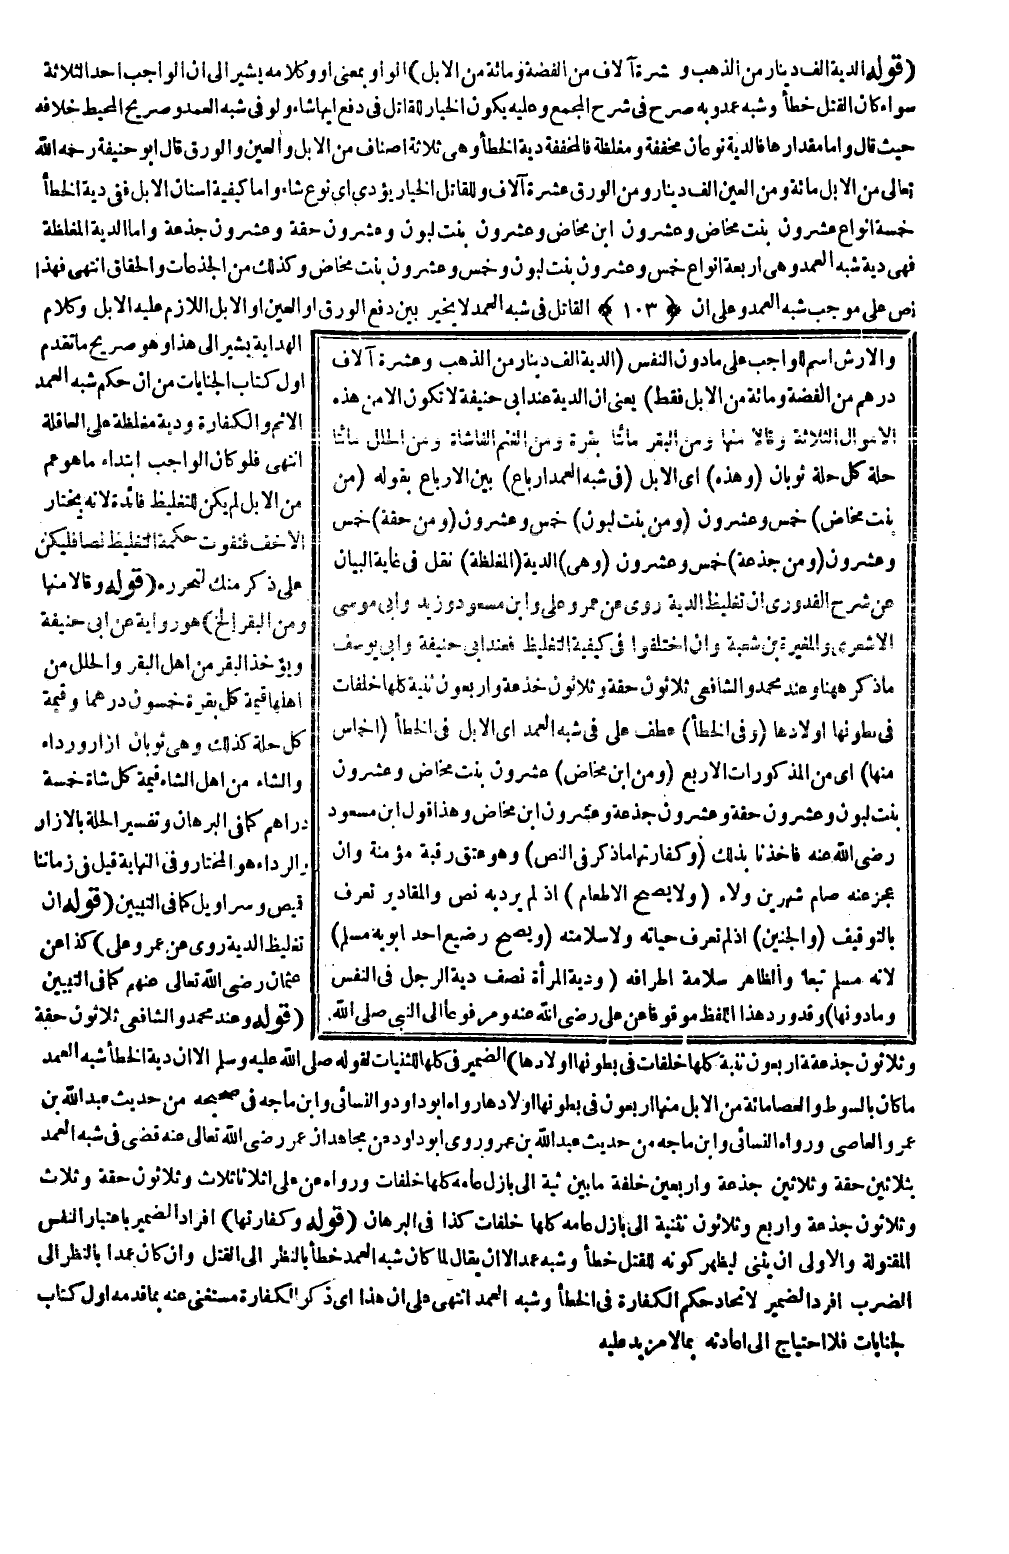 (قوله الدية الف دينار من الذهب و شرة آلاف من الفضة ومائة من الابل) الواو بمعنى او وكلامه يشير الى ان الواجب احد الثلاثة
سواء كان القتل خطأ وشبه عمد وبه صرح فى شرح المجمع وعليه يكون الخيار للقاتل فى دفع ايها شاء ولو فى شبه العمد وصريح المحيط خلافه
حيث قال واما مقدارها فالدية نوعان مخففة ومغلظة فالمخففة دية الخطأ وهى ثلاثة اصناف من الابل والعين والورق قال ابو حنيفة رحمه الله
تعالى من الابل مائة ومن العين الف دينار ومن الورق عشرة آلاف وللقاتل الخيار يؤدى اى نوع شاء واما كيفية اسنان الابل ففى دية الخطأ
خمسة انواع عشرون بنت مخاض وعشرون ابن مخاض وعشرون بنت لبون وعشرون حقة وعشرون جذعة واما الدية المغلظة
فهى دية شبه العمد وهى اربعة انواع خمس وعشرون بنت لبون وخمس وعشرون بنت مخاض وكذلك من الجذعات والحقاق انتهى فهذا
نص على موجب شبه العمد وعلى ان ﴿ ١٠٣ ﴾ القاتل فى شبه العمد لا يخير بين دفع الورق او العين او الابل اللازم عليه الابل وكلام
الهداية يشير الى هذا وهو صريح ما تقدم
اول كتاب الجنايات من ان حكم شبه العمد
الاثم والكفارة ودية مغلظة على العاقلة
انتهى فلو كان الواجب ابتداء ما هو عم
من الابل لم يكن للتغليظ فائدة لانه يختار
الاخف فتفوت حكمة التغليظ نصا فليكن
على ذكر منك لتحرره (قوله وقالا منها
ومن البقر الخ) هو رواية عن ابى حنيفة
ويؤخذ البقر من اهل البقر والحلل من
اهلها قيمة كل بقرة خمسون درهما وقيمة
كل حلة كذلك وهى ثوبان ازار ورداء
والشاء من اهل الشاء قيمة كل شاة خمسة
دراهم كما فى البرهان وتفسير الحلة بالازار
والرداء هو المختار وفى النهاية قيل فى زماننا
قميص وسراويل كما فى التبيين (قوله ان
تغليظ الدية روى عن عمر وعلى) كذا عن
عثمان رضى الله تعالى عنهم كما فى التبيين
(قوله وعند محمد والشافعى ثلاثون حقة
والارش اسم لواجب على ما دون النفس (الدية الف دينار من الذهب وعشرة آلاف
درهم من الفضة ومائة من الابل فقط) يعنى ان الدية عند ابى حنيفة لا تكون الا من هذه
الاموال الثلاثة وقالا منها ومن البقر مائتا بقرة ومن الغنم الفا شاة ومن الحلل مائتا
حلة كل حلة ثوبان (وهذه) اى الابل (فى شبه العمد ارباع) بين الارباع بقوله (من
بنت مخاض) خمس وعشرون (ومن بنت لبون) خمس وعشرون (ومن حقة) خمس
وعشرون (ومن جذعة) خمس وعشرون (وهى) الدية (المغلظة) نقل فى غاية البيان
عن شرح القدورى ان تغليظ الدية روى عن عمر وعلى وابن مسعود وزيد وابى موسى
الاشعرى والمغيرة بن شعبة وان اختلفوا فى كيفية التغليظ فعند ابى حنيفة وابى يوسف
ما ذكر ههنا وعند محمد والشافعى ثلاثون حقة وثلاثون خذعة واربعون ثنية كلها خلفات
فى بطونها اولادها (وفى الخطأ) عطف على فى شبه العمد اى الابل فى الخطأ (اخماس
منها) اى من المذكورات الاربع (ومن ابن مخاض) عشرون بنت مخاض وعشرون
بنت لبون وعشرون حقة وعشرون جذعة وعشرون ابن مخاض وهذا قول ابن مسعود
رضى الله عنه فاخذنا بذلك (وكفارتهما ما ذكر فى النص) وهو عتق رقبة مؤمنة وان
عجز عنه صام شهرين ولاء (ولا يصح الاطعام) اذ لم يرد به نص والمقادير تعرف
بالتوقيف (والجنين) اذ لم تعرف حياته ولا سلامته (ويصح رضيع احد ابويه مسلم)
لانه مسلم تبعا والظاهر سلامة اطرافه (ودية المرأة نصف دية الرجل فى النفس
وما دونها) وقد ورد هذا اللفظ موقوفا عن على رضى الله عنه ومرفوعا الى النبى صلى الله
وثلاثون جذعة واربعون ثنية كلها خلفات فى بطونها اولادها) الضمير فى كلها للثنيات لقوله صلى الله عليه وسلم الا ان دية الخطأ شبه العمد
ما كان بالسوط والعصا مائة من الابل منها اربعون فى بطونها اولادها رواه ابو داود والنسائى وابن ماجه فى صحيحه من حديث عبد الله بن
عمرو العاصى ورواه النسائى وابن ماجه من حديث عبد الله بن عمر وروى ابو داود عن مجاهد ان عمر رضى الله تعالى عنه قضى فى شبه العمد
بثلاثين حقة وثلاثين جذعة واربعين خلفة ما بين ثنية الى بازل عامه كلها خلفات ورواه عن على اثلاثا ثلاث وثلاثون حقة وثلاث
وثلاثون جذعة واربع وثلاثون ثنية الى بازل عامه كلها خلفات كذا فى البرهان (قوله وكفارتها) افراد الضمير باعتبار النفس
المقتولة والاولى ان يثنى ليظهر كونه للقتل خطأ وشبه عمد الا ان يقال لما كان شبه العمد خطأ بالنظر الى القتل وان كان عمدا بالنظر الى
الضرب افرد الضمير لاتحاد حكم الكفارة فى الخطأ وشبه العمد انتهى على ان هذا اى ذكر الكفارة مستغنى عنه بما قدمه اول كتاب
لجنايات فلا احتياج الى اعادته بما لا مزيد عليه